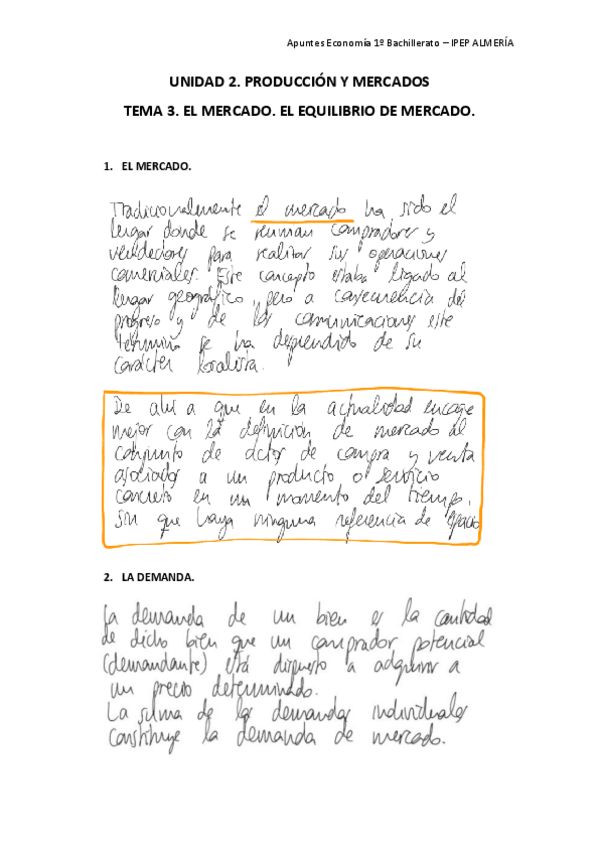 Apuntes Economía 1º Bachillerato – IPEP ALMERÍA
UNIDAD 2. PRODUCCIÓN Y MERCADOS
TEMA 3. EL MERCADO. EL EQUILIBRIO DE MERCADO.
1. EL MERCADO.
Tradicionalmente el mercado ha sido el
lugar donde se reunían compradores y
vendedores para realizar sus operaciones
comerciales. Este concepto estaba ligado al
lugar geográfico, pero a consecuencia del
progreso y de las comunicaciones este
término se ha desprendido de su
carácter localista.
De ahí a que en la actualidad encaje
mejor con la definición de mercado al
conjunto de actos de compra y venta
asociados a un producto o servicio
concreto en un momento del tiempo,
sin que haya ninguna referencia de espacio
2. LA DEMANDA.
La demanda de un bien es la cantidad
de dicho bien que un comprador potencial
(demandante) está dispuesto a adquirir a
un precio determinado.
La suma de las demandas individuales
constituye la demanda de mercado.